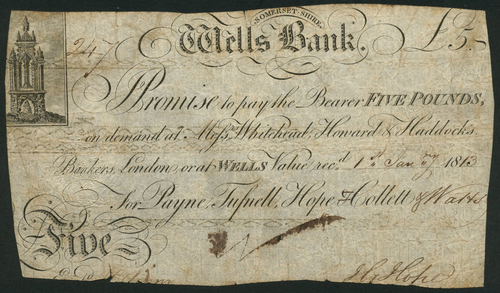 SOMERSET-SHIRE.
247 Wells Bank. £5.-
I Promise to pay the Bearer FIVE POUNDS,
on demand at Mess.rs Whitehead, Howard & Haddocks
Bankers, London, or at WELLS Value rec.d 1st Jan.ry 1813
For Payne, Tufnell, Hope & Collett & Watts
Five
Hope